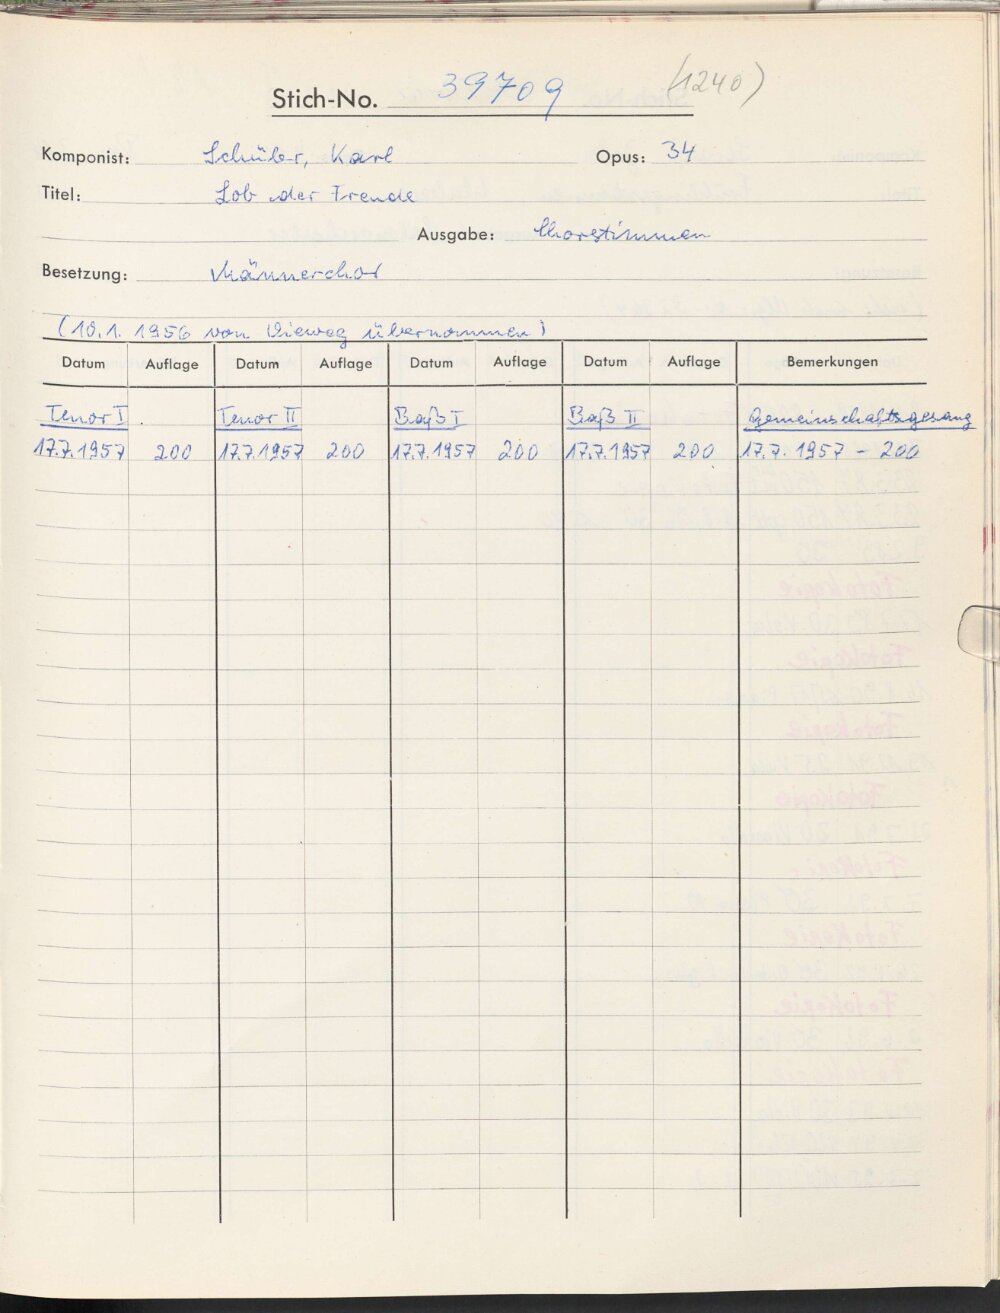 Stich-No. 39709 (1240)
Komponist: Schüler, Karl Opus: 34
Titel: Lob der Freude
Ausgabe: Chorstimmen
Besetzung: Männerchor
(10.1.1956 von Vieweg übernommen)
Datum Auflage Datum Auflage Datum Auflage Datum Auflage Bemerkungen
Tenor I Tenor II Baß I Baß II Gemeinschaftsgesang
17.7.1957 200 17.7.1957 200 17.7.1957 200 17.7.1957 200 17.7.1957 - 200